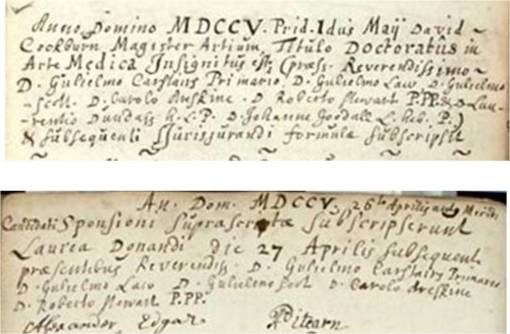 Anno Domino MDCCV. Prid. Idus Maij David
Cockburn Magister Artium, Titulo Doctoratus in
Arte Medica Insignitus est, (præs. Reverendissimo
D. Gulielmo Carstairs Primario, D. Gulielmo Law, D. Gulielmo
Scott. D. Carolo Erskine. D. Roberto Stewart P.P. & D. Lau-
rentio Dundass h. L. P. D. Johanne Goodall L. heb. P.)
& subsequenti Jurisjurandi formulæ subscripsit
An. Dom. MDCCV. 26to Aprilis
Candidati Sponsioni suprascriptæ subscripserunt
Laurea Donandi die 27 Aprilis subsequent
præsentibus Reverendiss. D. Gulielmo Carstairs Primario
D. Gulielmo Law D. Gulielmo Scot D. Carolo Areskine
D. Roberto Stewart P.P.
Alexander Edgar Pitcarn